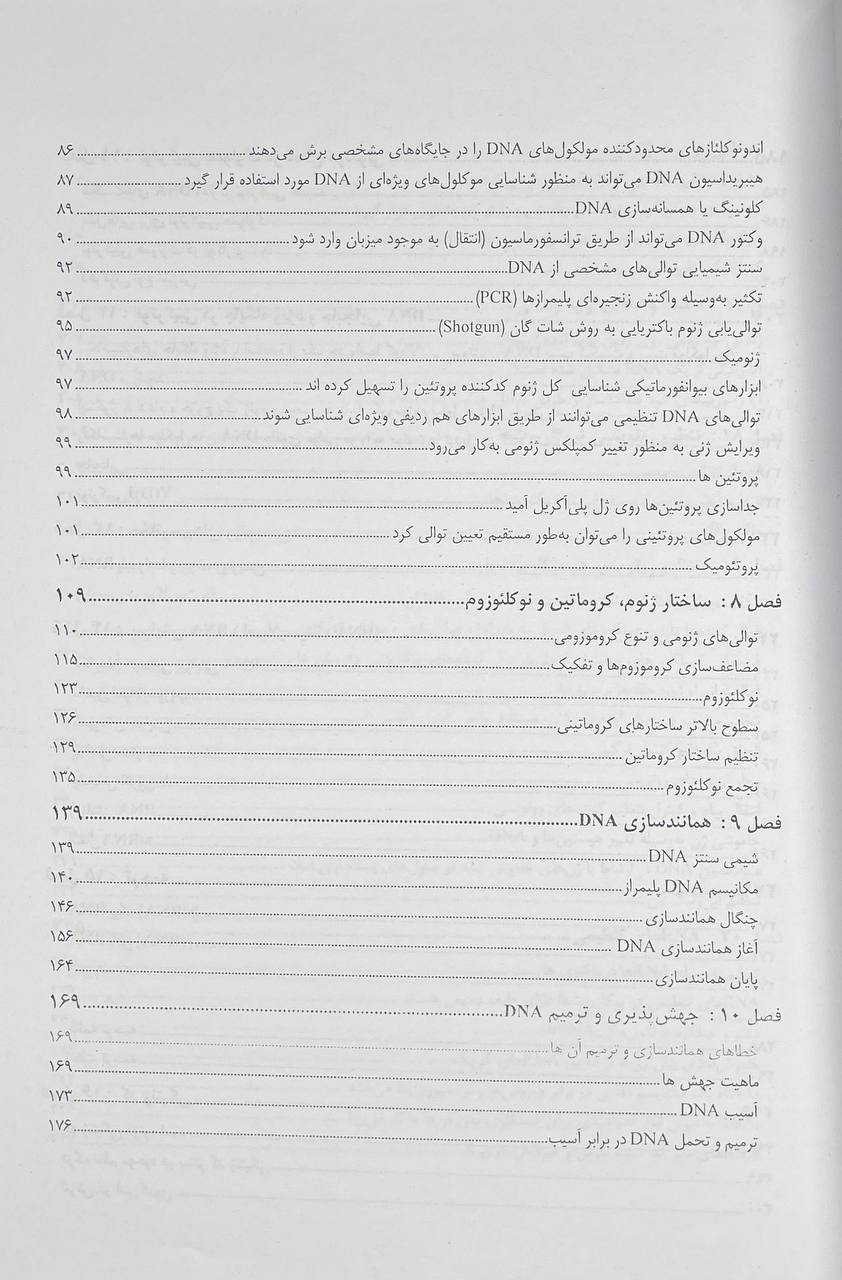 اندونوکلئازهای محدودکننده مولکول‌های DNA را در جایگاه‌های مشخصی برش می‌دهند ........ ۸۶
هیبریداسیون DNA می‌تواند به منظور شناسایی موکلول‌های ویژه‌ای از DNA مورد استفاده قرار گیرد ........ ۸۷
کلونینگ یا همسانه‌سازی DNA ........ ۸۹
وکتور DNA می‌تواند از طریق ترانسفورماسیون (انتقال) به موجود میزبان وارد شود ........ ۹۰
سنتز شیمیایی توالی‌های مشخصی از DNA ........ ۹۲
تکثیر به‌وسیله واکنش زنجیره‌ای پلیمرازها (PCR) ........ ۹۲
توالی‌یابی ژنوم باکتریایی به روش شات گان (Shotgun) ........ ۹۵
ژنومیک ........ ۹۷
ابزارهای بیوانفورماتیکی شناسایی کل ژنوم کدکننده پروتئین را تسهیل کرده اند ........ ۹۷
توالی‌های DNA تنظیمی می‌توانند از طریق ابزارهای هم ردیفی ویژه‌ای شناسایی شوند ........ ۹۸
ویرایش ژنی به منظور تغییر کمپلکس ژنومی به‌کار می‌رود ........ ۹۹
پروتئین ها ........ ۹۹
جداسازی پروتئین‌ها روی ژل پلی‌آکریل آمید ........ ۱۰۱
مولکول‌های پروتئینی را می‌توان به‌طور مستقیم تعیین توالی کرد ........ ۱۰۱
پروتئومیک ........ ۱۰۲
فصل ۸ : ساختار ژنوم، کروماتین و نوکلئوزوم ........ ۱۰۹
توالی‌های ژنومی و تنوع کروموزومی ........ ۱۱۰
مضاعف‌سازی کروموزوم‌ها و تفکیک ........ ۱۱۵
نوکلئوزوم ........ ۱۲۳
سطوح بالاتر ساختارهای کروماتینی ........ ۱۲۶
تنظیم ساختار کروماتین ........ ۱۲۹
تجمع نوکلئوزوم ........ ۱۳۵
فصل ۹ : همانندسازی DNA ........ ۱۳۹
شیمی سنتز DNA ........ ۱۳۹
مکانیسم DNA پلیمراز ........ ۱۴۰
چنگال همانندسازی ........ ۱۴۶
آغاز همانندسازی DNA ........ ۱۵۶
پایان همانندسازی ........ ۱۶۴
فصل ۱۰ : جهش‌پذیری و ترمیم DNA ........ ۱۶۹
خطاهای همانندسازی و ترمیم آن ها ........ ۱۶۹
ماهیت جهش ها ........ ۱۶۹
آسیب DNA ........ ۱۷۳
ترمیم و تحمل DNA در برابر آسیب ........ ۱۷۶